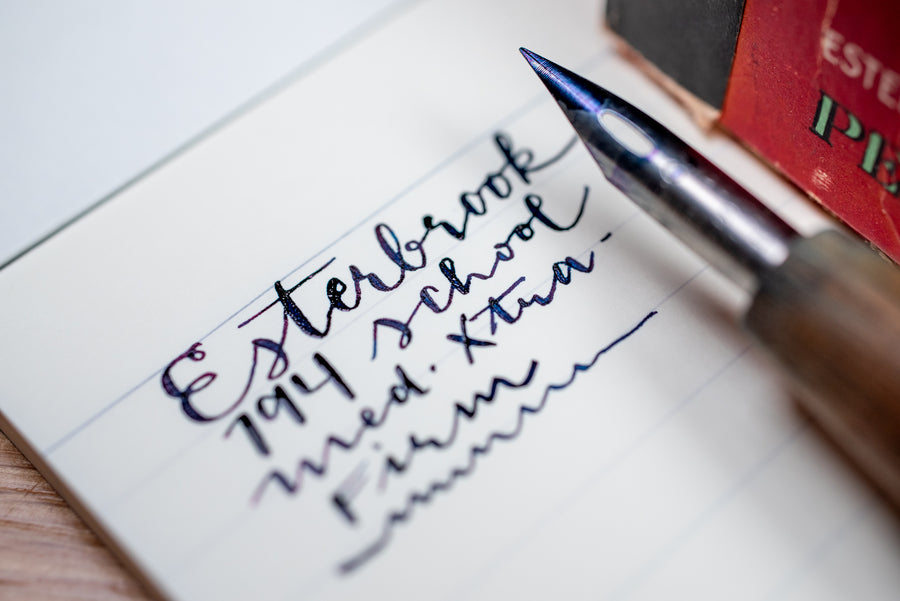 Esterbrook
794 school
med. Xtra-
Firm
ESTE
PE